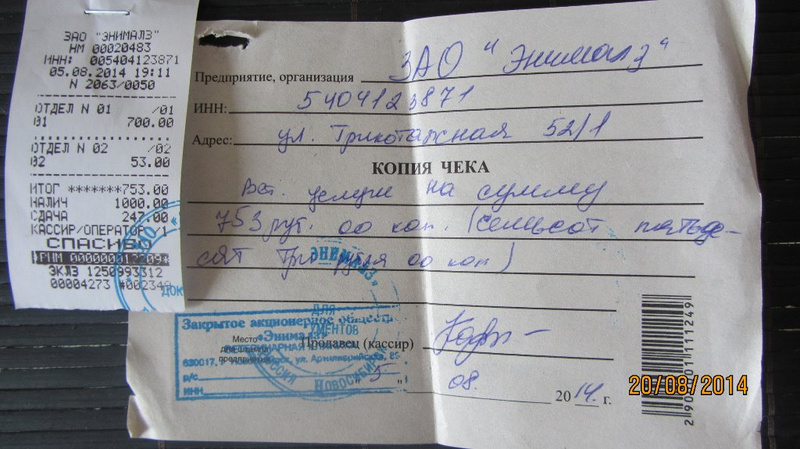 ЗАО "ЭНИМАЛЗ"
НМ 00020483
ИНН: 005404123871
05.08.2014 19:11
N 2063/0050
ОТДЕЛ N 01 /01
01 700.00
ОТДЕЛ N 02 /02
02 53.00
ИТОГ *******753.00
НАЛИЧ 1000.00
СДАЧА 247.00
КАССИР/ОПЕРАТОР/1
СПАСИБО
ЭКЛЗ 1250993312
00004273
Предприятие, организация ЗАО "Энималз"
ИНН: 5404123871
Адрес: ул. Трикотажная 52/1
КОПИЯ ЧЕКА
Вет. услуги на сумму
753 руб. 00 коп. (семьсот пятьде-
сят три рубля 00 коп)
"ЭНИМАЛЗ"
ДЛЯ
Закрытое акционерное общество
«Энималз»
Место
для печати
предприятия
630017, г. Новосибирск, ул. Артиллерийская,
р/с
ИНН
РОССИЯ НОВОСИБИРСК
Продавец (кассир)
"5" 08. 2014 г.
2 900001 111249
20/08/2014